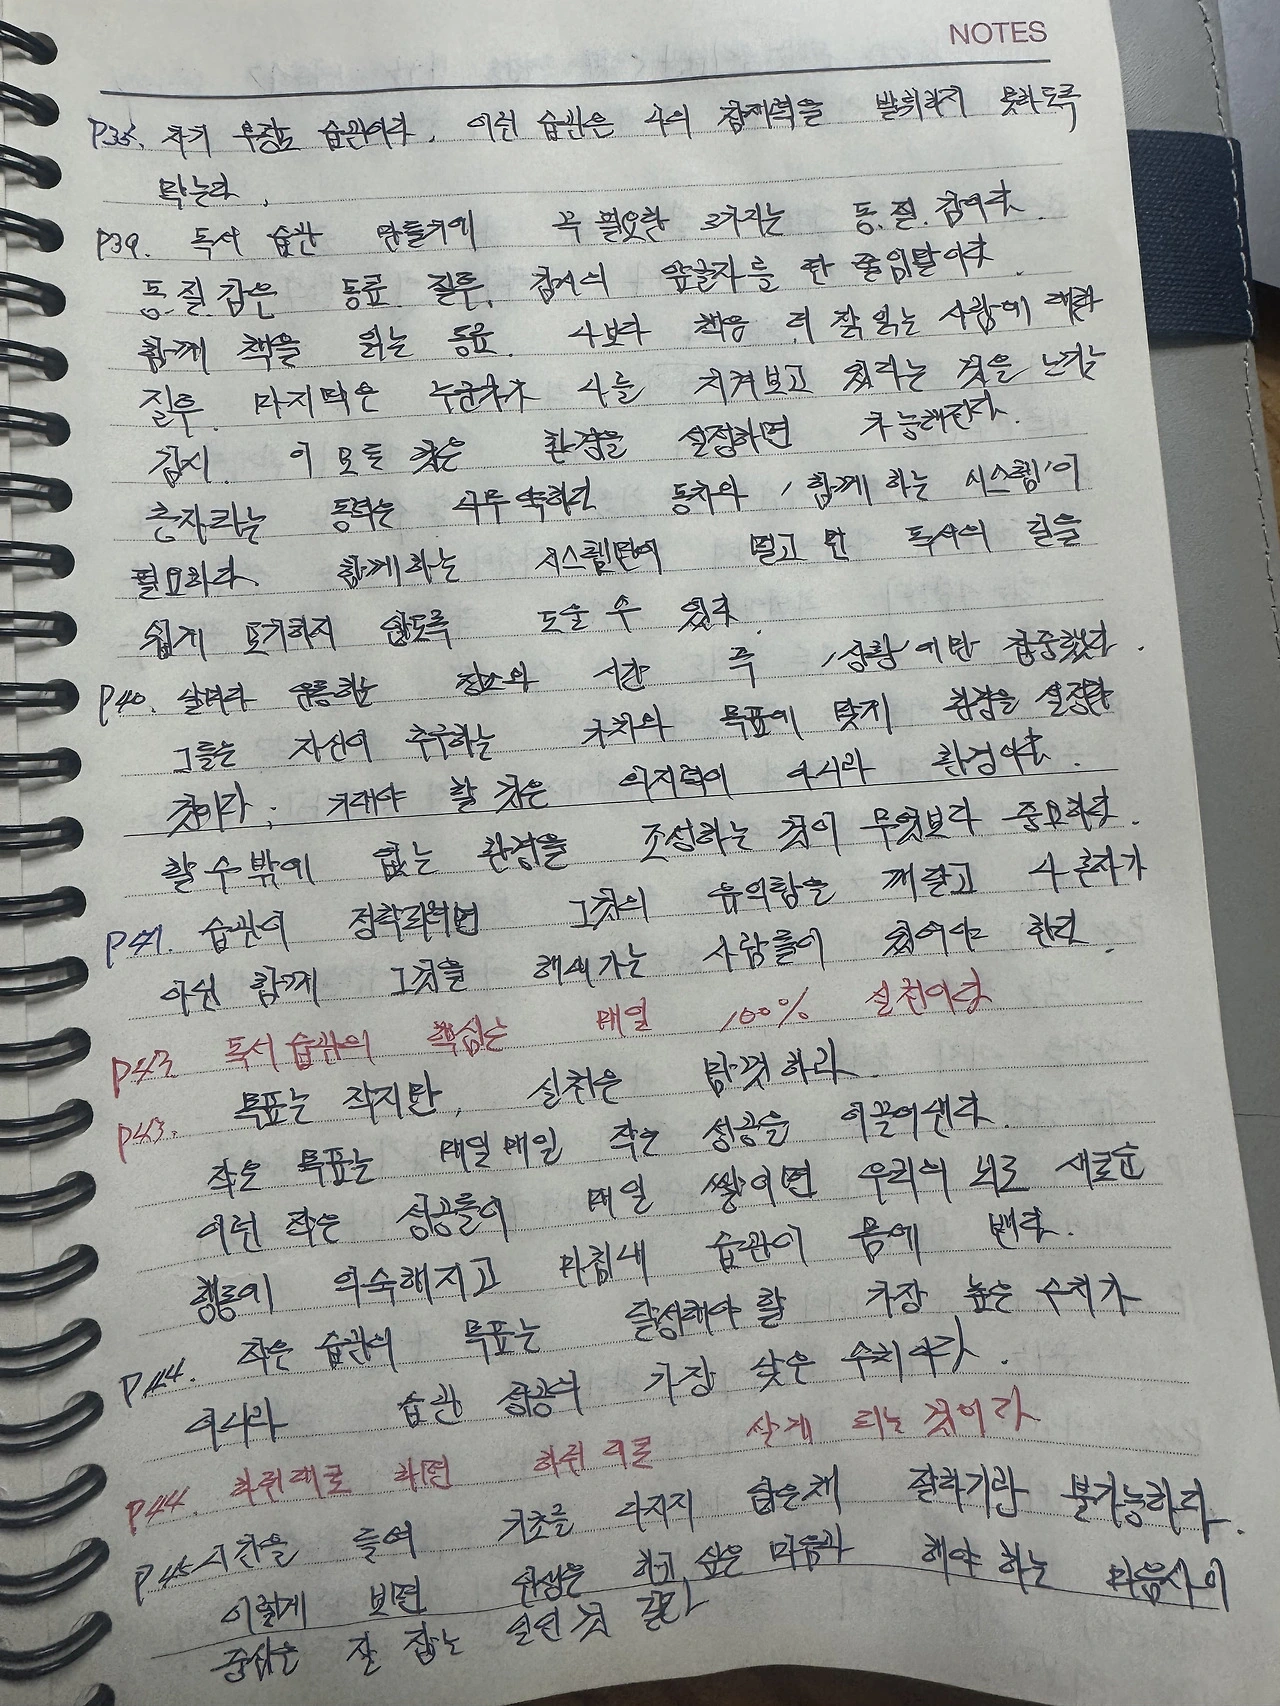 NOTES
P38. 자기 우장도 습관이다. 이런 습관은 나의 잠재력을 발휘하지 못하도록
막는다.
P39. 독서 습관 만들기에 꼭 필요한 3가지는 동.질.감이다.
동.질.감은 동료, 질투, 감시의 앞글자를 딴 줄임말이다.
함께 책을 읽는 동료. 나보다 책을 더 잘 읽는 사람에 대한
질투. 마지막은 누군가가 나를 지켜보고 있다는 것을 느끼는
감시. 이 모든 것은 환경을 설정하면 가능해진다.
혼자라는 동력은 너무 약하다 동지와 '함께 하는 시스템'이
필요하다. 함께하는 시스템만이 멀고 먼 독서의 길을
쉽게 포기하지 않도록 도울 수 있다.
P40. 살더라 운동하는 장소와 시간 즉 '상황'에만 집중했다.
그들은 자신이 추구하는 가치와 목표에 맞게 환경을 설정한
것이다. 기대야 할 것은 의지력이 아니라 환경이다.
할 수 밖에 없는 환경을 조성하는 것이 무엇보다 중요하다.
P41. 습관이 정착되려면 그것의 유익함을 깨닫고 나 혼자가
아닌 함께 그것을 해나가는 사람들이 있어야 한다.
P43 독서습관의 핵심은 매일 100% 실천이다
P43. 목표는 작지만, 실천은 담대하라.
작은 목표는 매일매일 작은 성공을 이끌어낸다.
이런 작은 성공들이 매일 쌓이면 우리의 뇌로 새로운
행동이 익숙해지고 마침내 습관이 몸에 밴다.
P44. 작은 습관의 목표는 달성해야 할 가장 높은 수치가
아니라 습관 성공의 가장 낮은 수치이다.
P44. 하던대로 하면 하던 대로 살게 되는 것이다
P45 시간을 들여 기초를 다지지 않은채 잘하기란 불가능하다.
이렇게 보면 인생은 하고 싶은 마음과 해야 하는 마음사이
중심은 잘 잡는 일인 것 같다